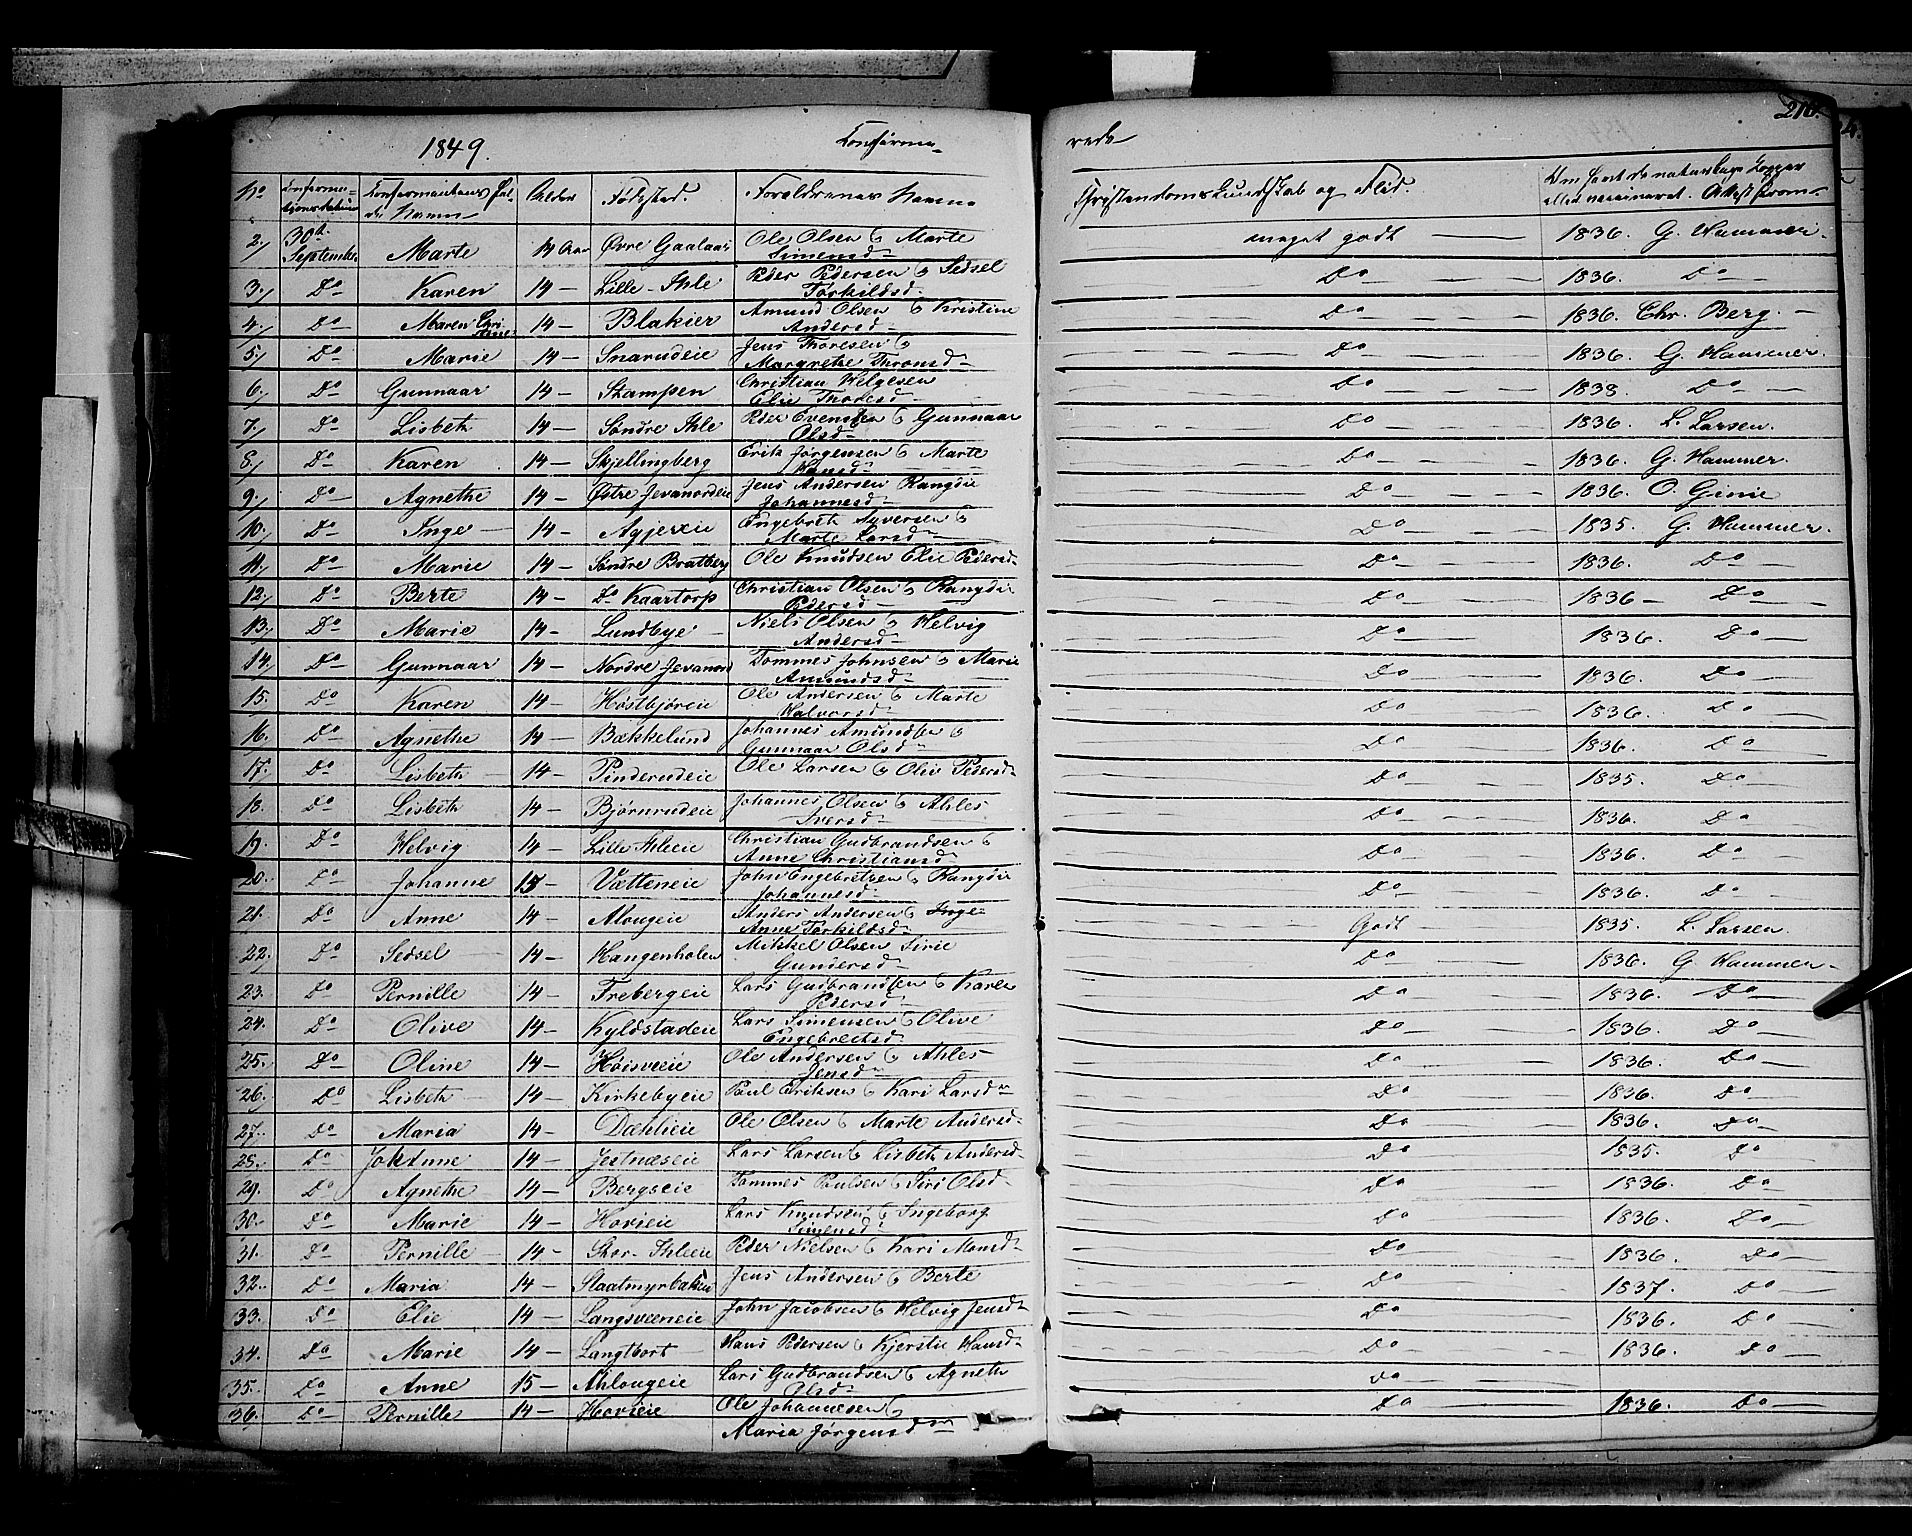 1849. Confirme- rede 210.
No Confirmationsdatum Confirmantens fulde Navn Alder Fødested. Forældrenes Navne Christendomskundskab og Flid. Om havt de naturlige Kopper eller vaccineret. Attest from-
2, 30te September Marte 14 Aar Øvre Gaalaas Ole Olsen & Marte Simensd meget godt 1836. G. Hammer.
3, Do Karen 14 Lille-Ihle Peder Pedersen & Sidsel Torkildsd. Do 1836. Do
4, Do Maren Christine 14 Blakier Amund Olsen & Kristine Andersd Do 1836. Chr. Berg.
5, Do Marie 14 Snarudeie Jens Thoresen & Margrethe Thronsd Do 1836. G. Hammer.
6, Do Gunnaar 14 Stampen Christian Helgesen Elie Thoresd Do 1838. Do
7, Do Lisbeth 14 Søndre Ihle Peder Evensen & Gunnaar Olsd Do 1836. L. Larsen.
8, Do Karen 14 Skjellingberg Erik Jørgensen & Marte Hansd Do 1836. G. Hammer.
9, Do Agnethe 14 Østre Jevanordeie Jens Andersen Rangdie Johannesd Do 1836. O. Ginie
10, Do Inge 14 Agjerseie Engebreth Ayversen & Marte Larsd Do 1835. G. Hammer.
11, Do Marie 14 Søndre Bratberg Ole Knudsen Elie Pedersd Do 1836. Do
12, Do Berte 14 Do Kaartorp Christian Olsen & Rangdie Pedersd Do 1836 Do
13, Do Marie 14 Lundbye Niels Olsen & Helvig Andersd Do 1836. Do
14, Do Gunnaar 14 Nordre Jevanord Tommes Johnsen & Marie Amundsd Do 1836. Do
15. Do Karen 14 Høstbjøreie Ole Andersen & Marte Halvorsd Do 1836. Do
16. Do Agnethe 14 Bækkelund Johannes Amundsen & Gunnaar Olsd Do 1836. Do
17. Do Lisbeth 14 Pinderudeie Ole Larsen & Olie Pedersd Do 1835. Do
18. Do Lisbeth 14 Bjørnrudeie Johannes Olsen & Ahles Iversd Do 1836. Do
19. Do Helvig 14 Lille Ihleeie Christian Gudbrandsen & Anne Christiansd Do 1836. Do
20. Do Johanne 15 Vætteneie John Engebretsen & Rangdie Johannesd Do 1836. Do
21. Do Anne 14 Alougeie Anders Andersen & Inge Anne Torkildsd Godt 1835. L. Larsen.
22. Do Sidsel 14 Hangenholen Mikkel Olsen Sirie Gundersd Do 1836. G. Hammer
23. Do Pernille 14 Frebergeie Lars Gudbrandsen & Karen Pedersd Do 1836. Do
24. Do Olive 14 Kyldstadeie Lars Simensen & Olive Engebretsd Do 1836. Do
25. Do Oline 14 Høisveeie Ole Andersen & Ahles Jensd Do 1836. Do
26. Do Lisbeth 14 Kirkebyeie Paul Eriksen & Kari Larsd Do 1836. Do
27. Do Maria 14 Dæhlieie Ole Olsen & Marte Andersd Do 1836. Do
28. Do Johanne 14 Jestnæseie Lars Larsen & Lisbeth Andersd Do 1835. Do
29. Do Agnethe 14 Bergseie Tommes Paulsen & Siri Olsd Do 1836. Do
30. Do Marie 14 Hovieie Lars Knudsen & Ingeborg Simensd Do 1836. Do
31. Do Pernille 14 Stor-Ihleeie Peder Nielsen & Kari Monsd Do 1836. Do
32. Do Maria 14 Staatmyrbakken Jens Andersen & Berte Do 1837. Do
33. Do Elie 14 Langsveeneie John Jacobsen & Helvig Jensd Do 1836. Do
34. Do Marie 14 Langtbort Hans Pedersen & Kjerstie Hansd Do 1836. Do
35. Do Anne 15 Ahlougeie Lars Gudbrandsen & Agneth Olsd Do
36. Do Pernille 14 Hovieie Ole Johannesen & Maria Jørgensd Do 1836. Do